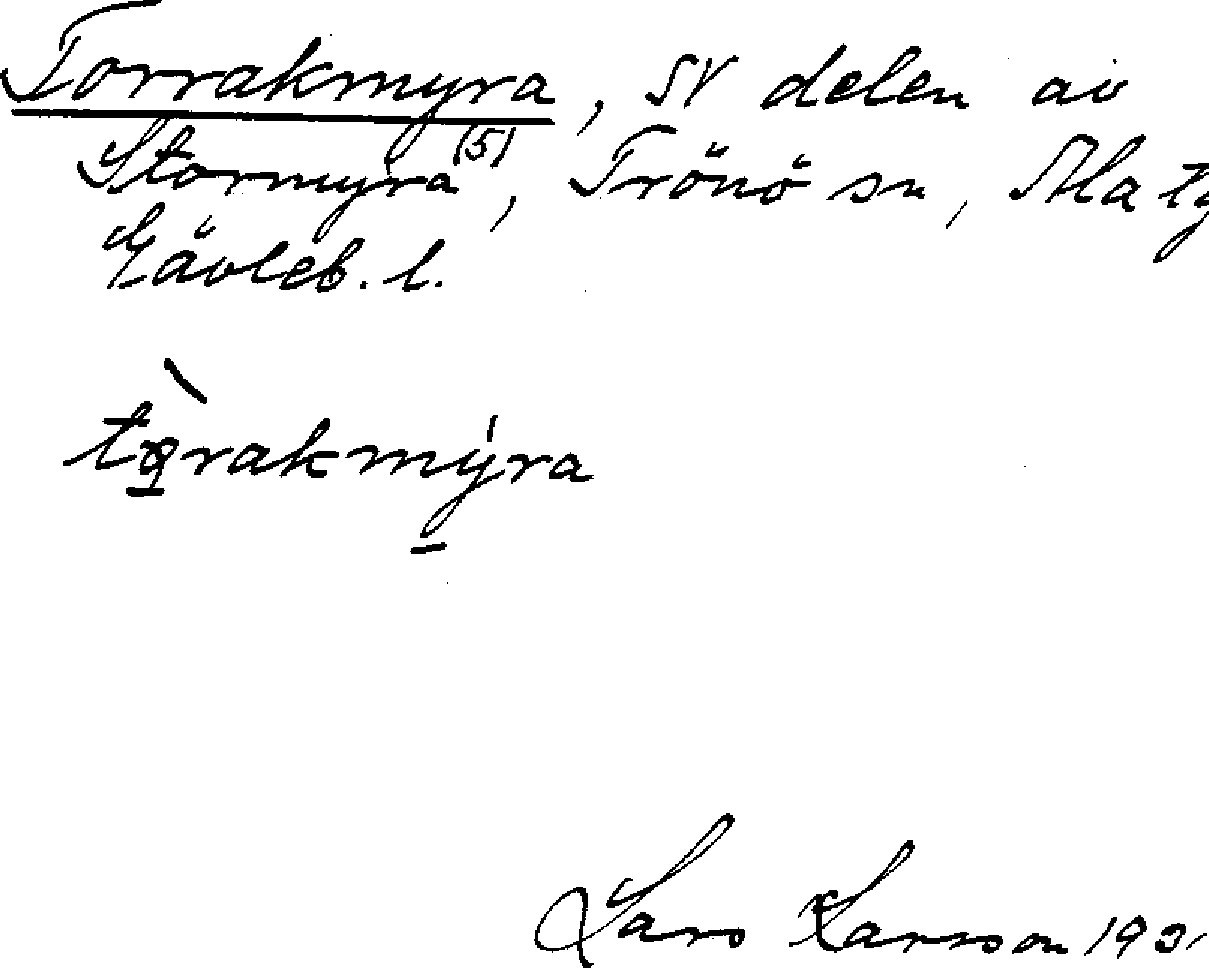 Torrakmyra, SV delen av
Stormyra (5), Trönö sn, Ala tg
Gävleb. l.
tørakmýra
Lars Larsson